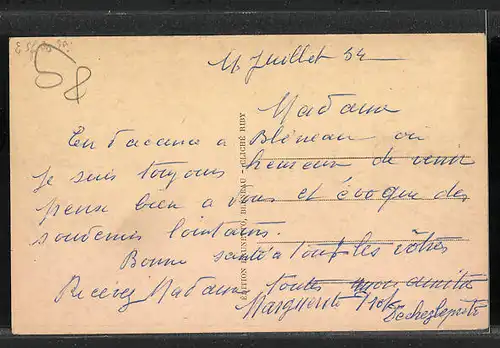 58
11 Juillet 34
Madame
En vacances à Bléneau où
je suis toujours heureux de venir
pense bien à vous et évoque des
souvenirs lointains.
Bonne santé à tous les vôtres
Recevez Madame toutes mon amitié
Marguerite
ÉDITION BLÉNEAU - CLICHÉ RIBY